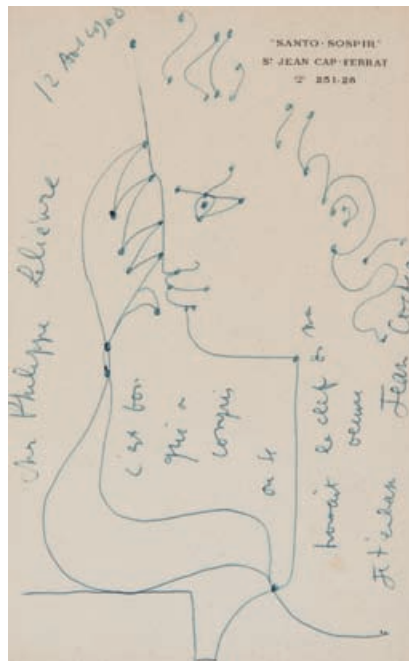 "SANTO-SOSPIR"
St JEAN CAP-FERRAT
☎ 251-26
12
Cher Philippe Lelièvre
c'est toi
qui a
compris
où se
trouvait la clef
oeuvre
Je t'embrasse Jean Cocteau